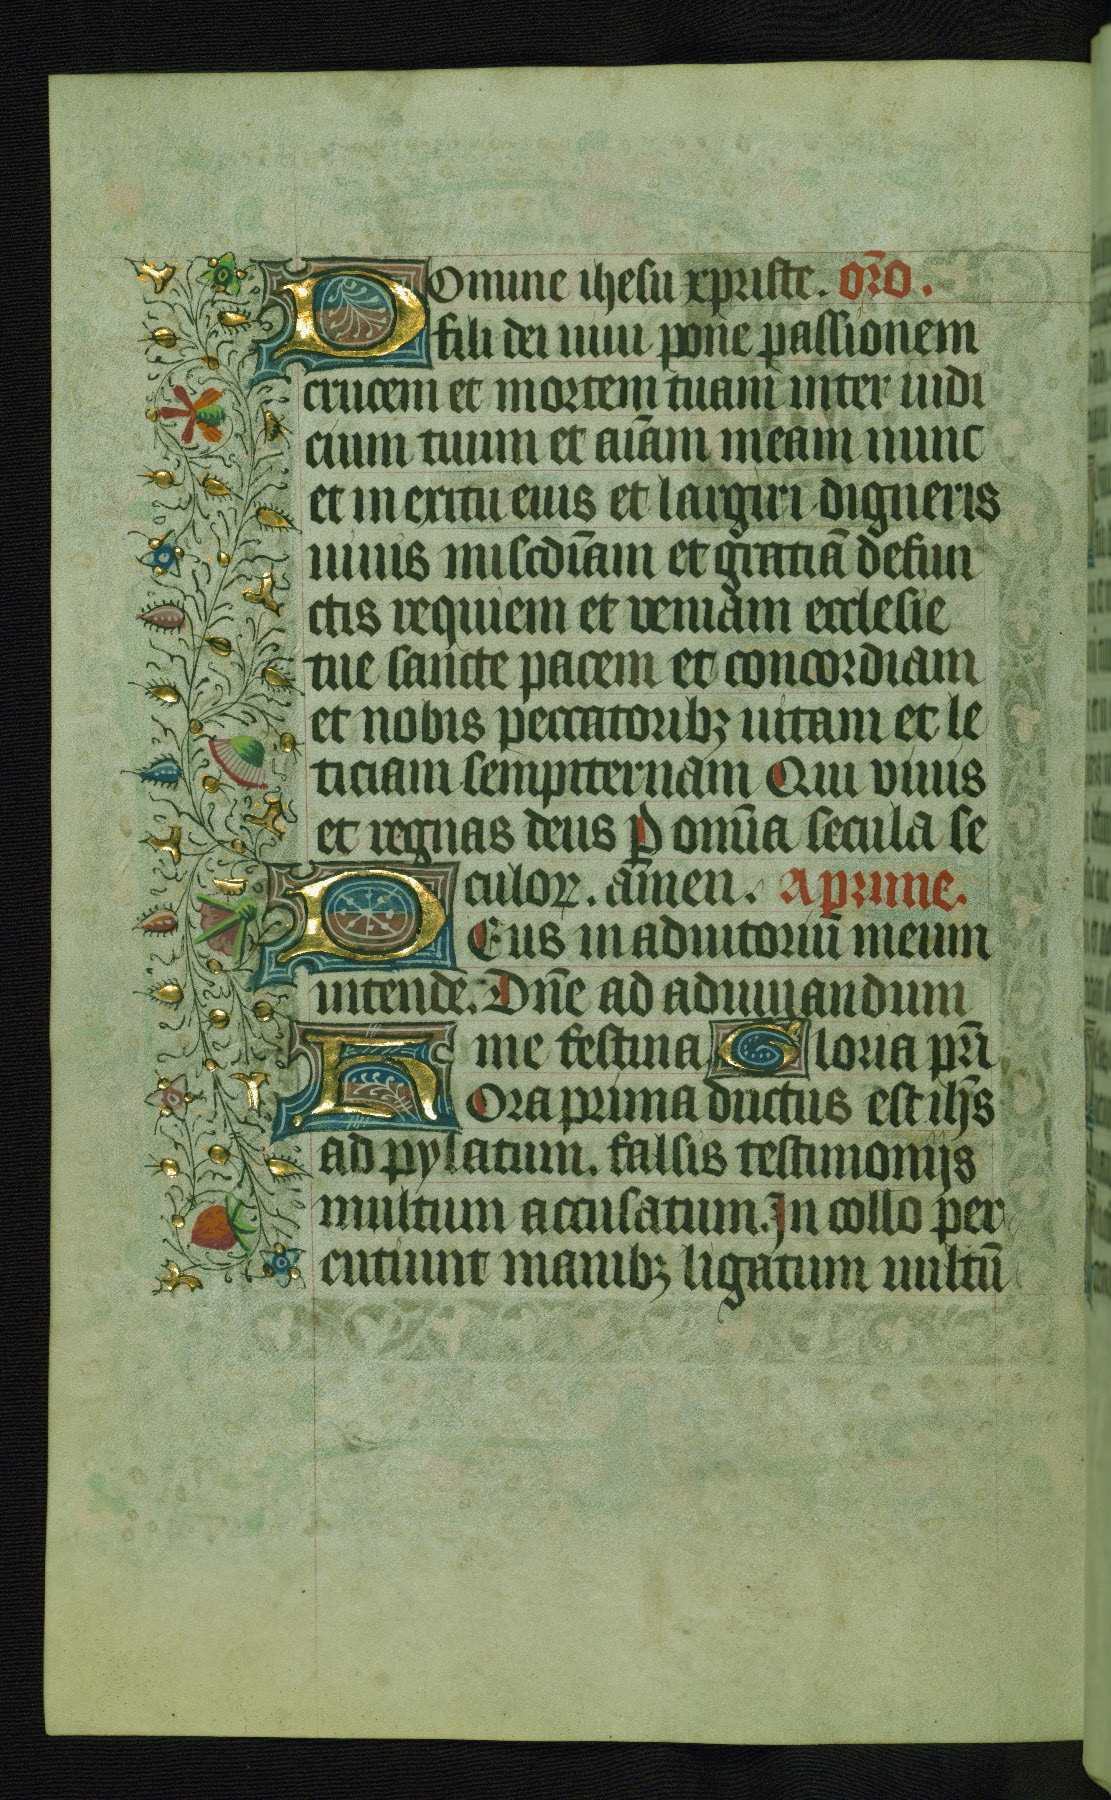 Domine ihesu xpriste. or̄o.
fili dei uiui pone passionem
crucem et mortem tuam inter iudi
cium tuum et aīam meam nunc
et in exitu eius et largiri digneris
uiuis miscd̄iam et gratiā defun
ctis requiem et ueniam ecclesie
tue sancte pacem et concordiam
et nobis peccatoribꝫ uitam et le
ticiam sempiternam Qui viuis
et regnas deus ꝑ omīa secula se
culoꝝ. am̄en. A prime.
DEus in adiutoriū meum
intende. Dn̄e ad adiuuandum
me festina Gloria pr̄i
HOra prima ductus est ih̄s
ad pylatum. falsis testimonijs
multum accusatum. In collo per
cutiunt manibꝫ ligatum uultū